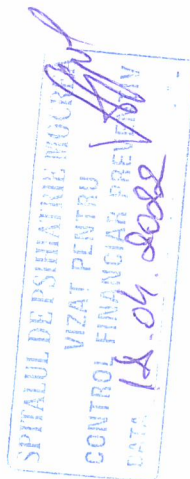 SPITALUL DE PSIHIATRIE
VIZAT PENTRU
CONTROL FINANCIAR PREVENTIV
DATA